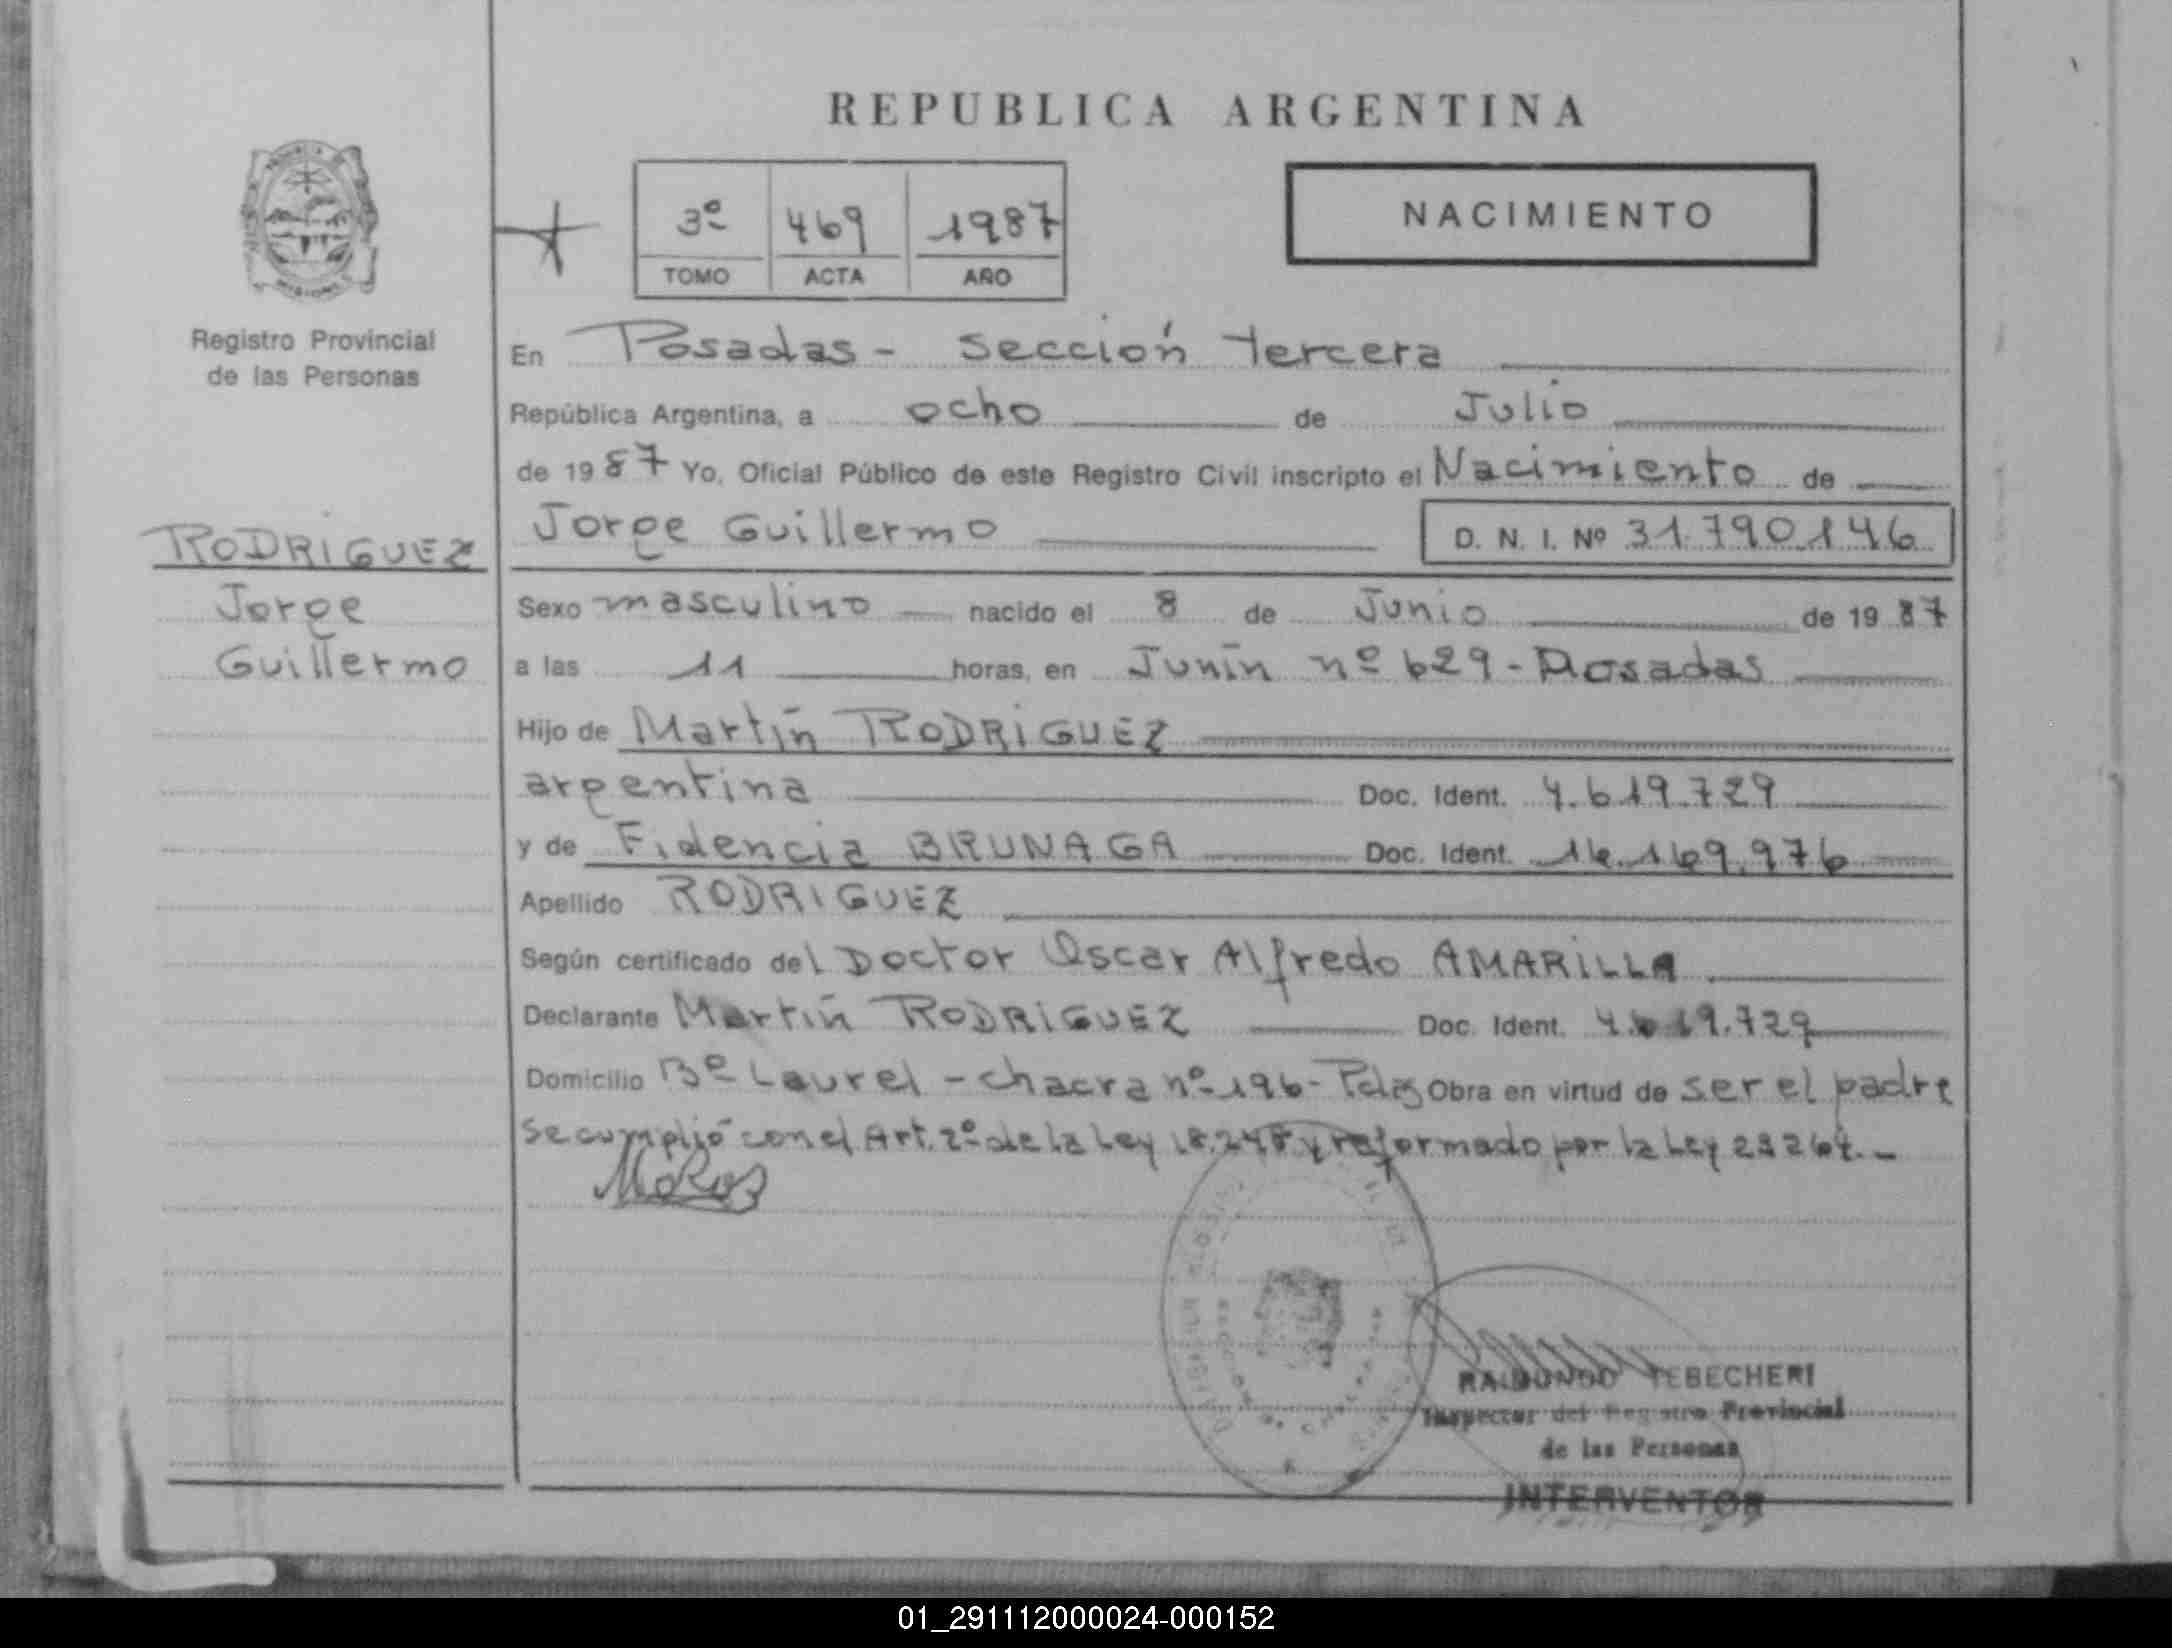 REPUBLICA ARGENTINA
NACIMIENTO
3º 469 1987
TOMO ACTA AÑO
Registro Provincial
de las Personas
RODRIGUEZ
Jorge
Guillermo
En Posadas - Sección tercera
República Argentina, a ocho de Julio
de 1987 Yo, Oficial Público de este Registro Civil inscripto el Nacimiento de
Jorge Guillermo D. N. I. Nº 31.790.146
Sexo masculino nacido el 8 de Junio de 1987
a las 11 horas, en Junín nº 629 - Posadas
Hijo de Martín RODRIGUEZ
argentina Doc. Ident. 4.619.729
y de Fidencia BRUNAGA Doc. Ident. 16.169.976
Apellido RODRIGUEZ
Según certificado del Doctor Oscar Alfredo AMARILLA
Declarante Martín RODRIGUEZ Doc. Ident. 4.619.729
Domicilio Bº Laurel - chacra nº 196 - Pdas Obra en virtud de ser el padre
se cumplió con el Art. 2º de la Ley 18.248 y reformado por la Ley 23264.-
RAIMUNDO TEBECHERI
Inspector del Registro Provincial
de las Personas
INTERVENTOR
01_291112000024-000152